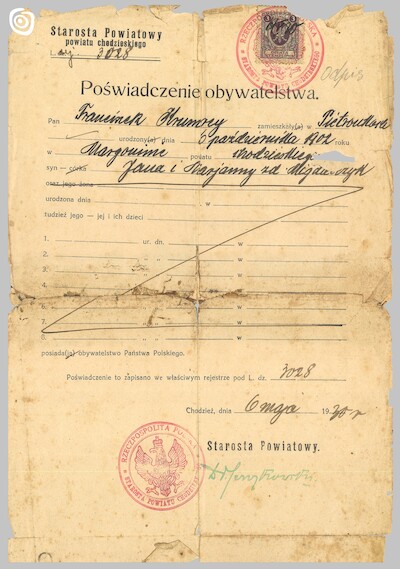 Starosta Powiatowy
powiatu chodzieskiego
3028
Odpis
Poświadczenie obywatelstwa.
Pan Franciszek zamieszkały(a) w
urodzony(a) dnia 5 października 1902 roku
w Margoninie powiatu chodzieskiego
syn — córka Jana i Marjanny zd
oraz jego żona
urodzona dnia w
tudzież jego — jej i ich dzieci
1. ur. dn. w
2. „ „ w
3. „ „ w
4. „ „ w
5. „ „ w
6. „ „ w
7. „ „ w
8. „ „ w
posiada(ją) obywatelstwo Państwa Polskiego.
Poświadczenie to zapisano we właściwym rejestrze pod L. dz. 3028
Chodzież, dnia 6 maja 1930 r
Starosta Powiatowy.
RZECZPOSPOLITA
STAROSTA POWIATU